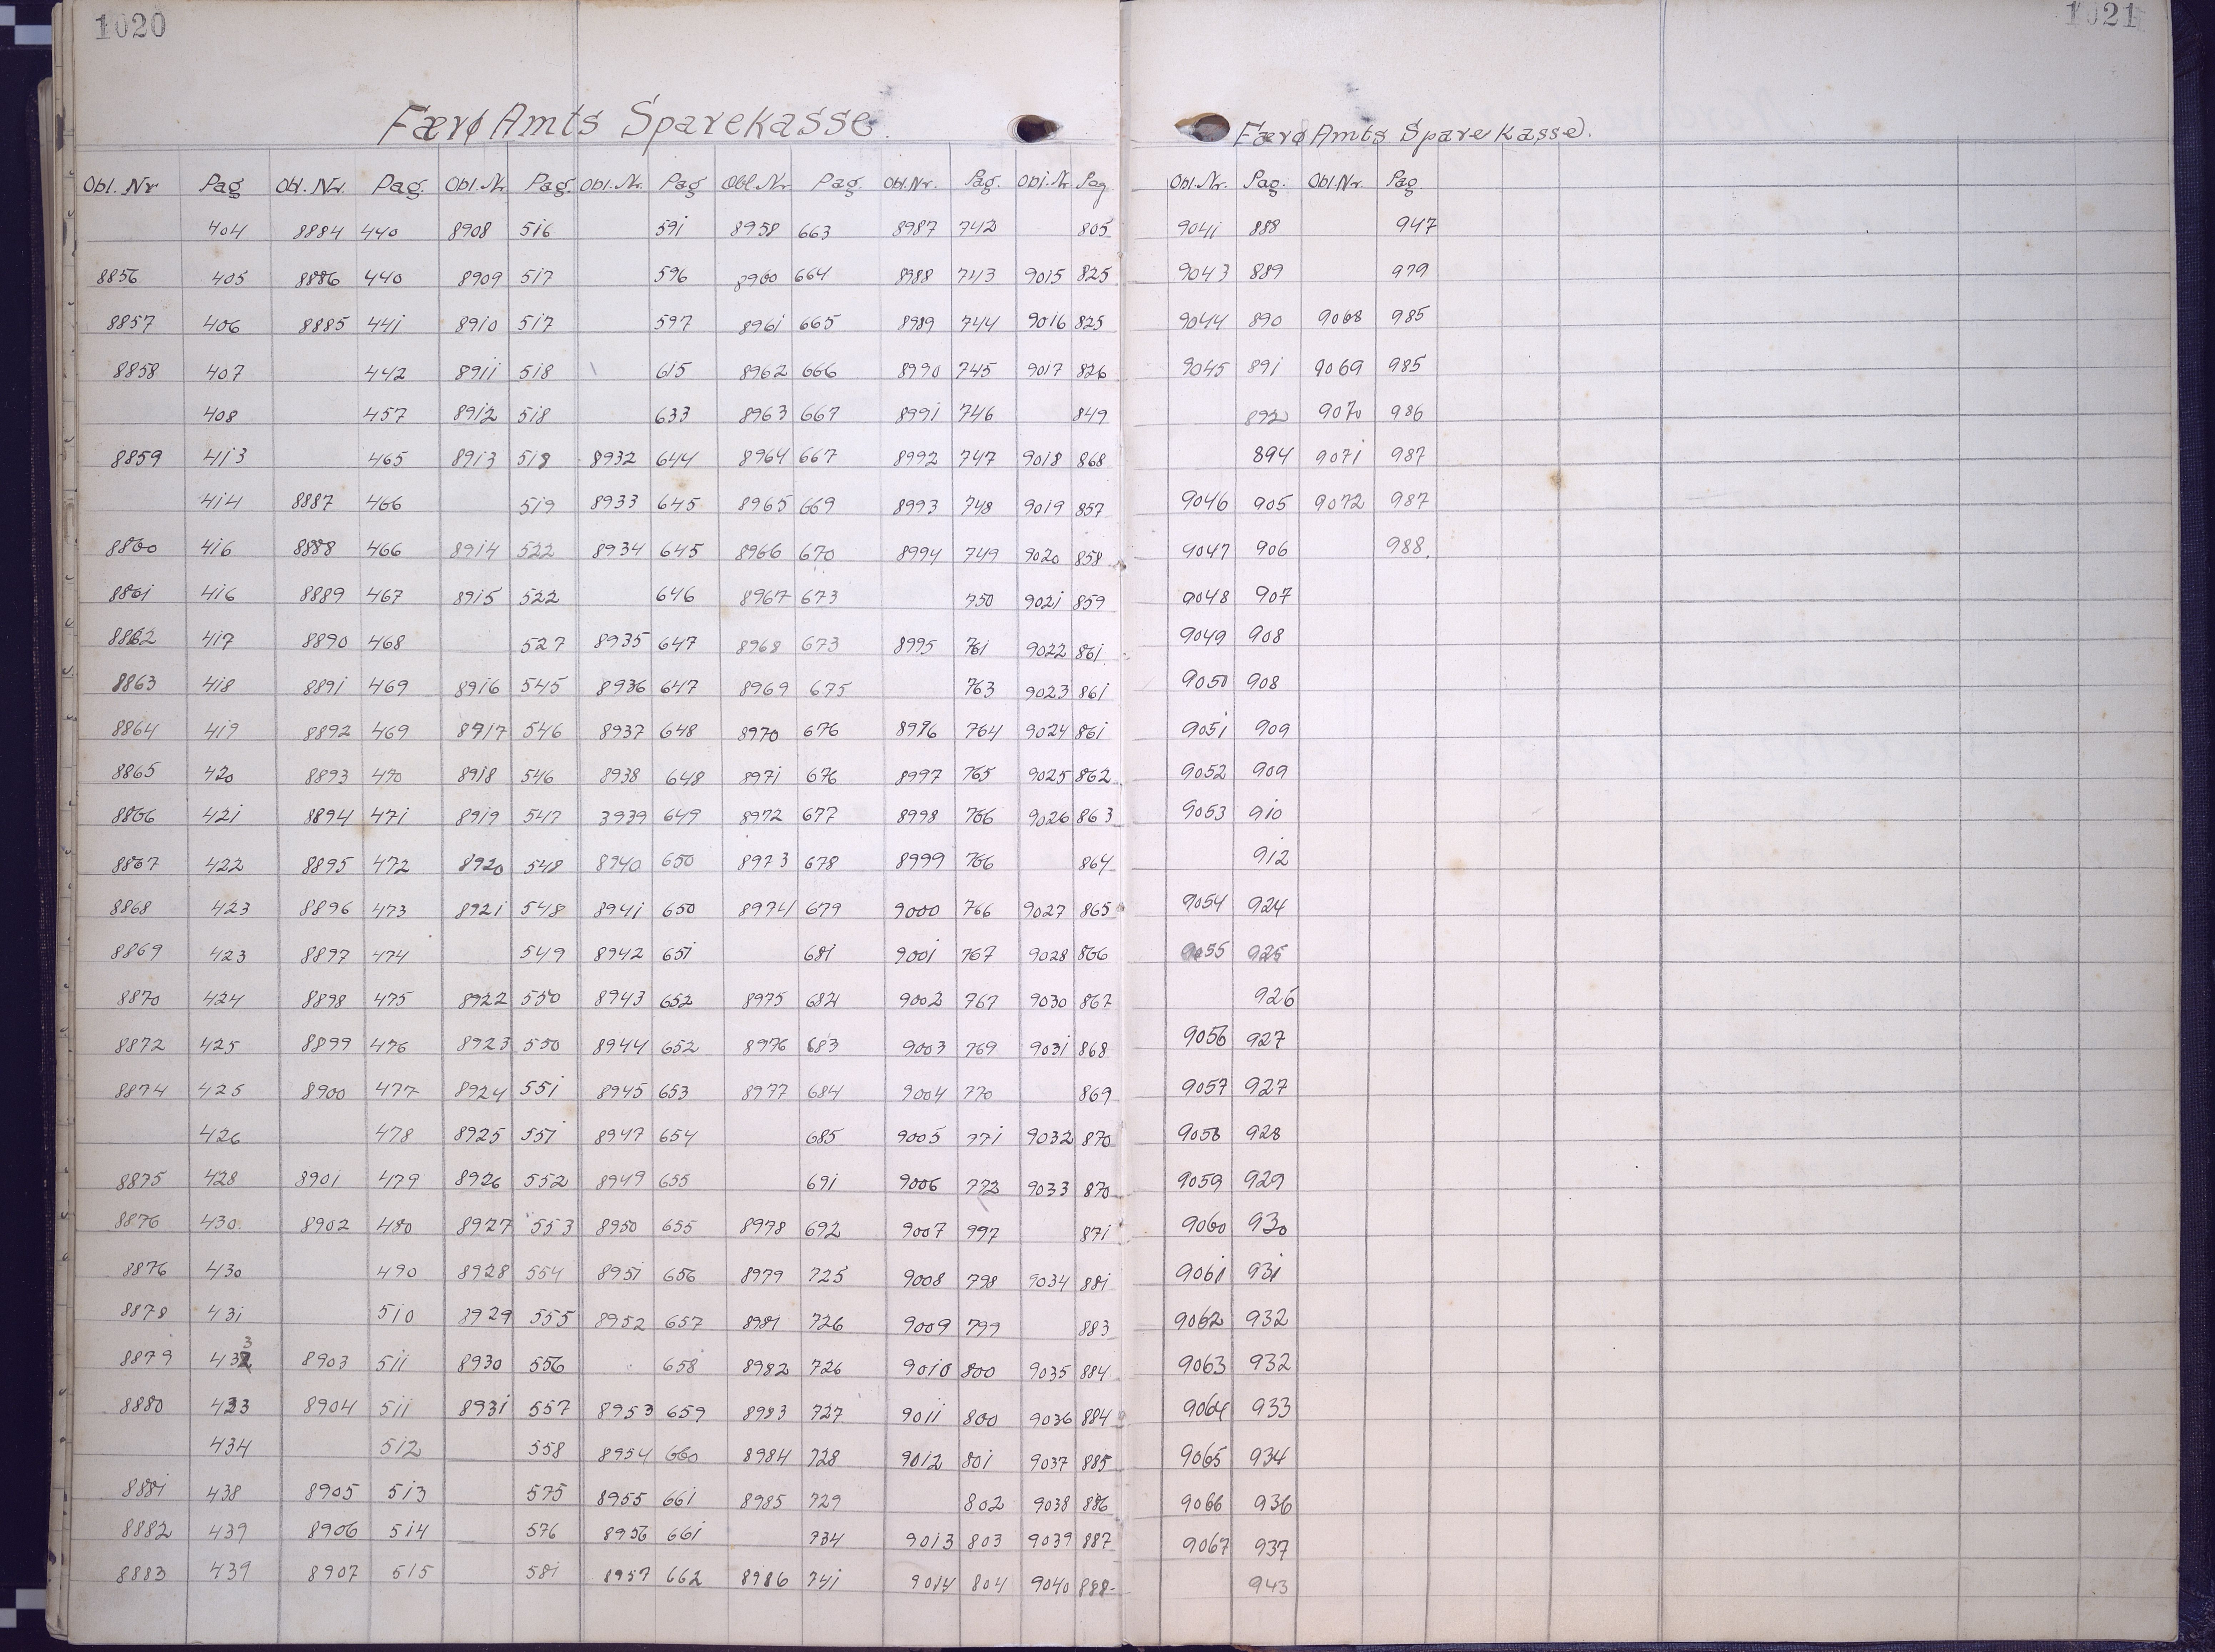 1020
Færø Amts Sparekasse.
Obl. Nr Pag Obl. Nr. Pag. Obl. Nr Pag. Obl. Nr. Pag Obl. Nr Pag. Obl. Nr. Pag. Obl. Nr Pag.
404 8884 440 8908 516 591 8958 663 8987 742 805
8856 405 8886 440 8909 517 596 8960 664 8988 743 9015 825
8857 406 8885 441 8910 517 597 8961 665 8989 744 9016 825
8858 407 442 8911 518 615 8962 666 8990 745 9017 826
408 457 8912 518 633 8963 667 8991 746 849
8859 413 465 8913 518 8932 644 8964 667 8992 747 9018 868
414 8887 466 519 8933 645 8965 669 8993 748 9019 857
8860 416 8888 466 8914 522 8934 645 8966 670 8994 749 9020 858
8861 416 8889 467 8915 522 646 8967 673 750 9021 859
8862 417 8890 468 527 8935 647 8968 673 8995 761 9022 861
8863 418 8891 469 8916 545 8936 647 8969 675 763 9023 861
8864 419 8892 469 8917 546 8937 648 8970 676 8996 764 9024 861
8865 420 8893 470 8918 546 8938 648 8971 676 8997 765 9025 862
8866 421 8894 471 8919 547 3939 649 8972 677 8998 766 9026 863
8867 422 8895 472 8920 548 8940 650 8973 678 8999 766 864
8868 423 8896 473 8921 548 8941 650 8974 679 9000 766 9027 865
8869 423 8897 474 549 8942 651 681 9001 767 9028 866
8870 424 8898 475 8922 550 8943 652 8975 682 9002 767 9030 867
8872 425 8899 476 8923 550 8944 652 8976 683 9003 769 9031 868
8874 425 8900 477 8924 551 8945 653 8977 684 9004 770 869
426 478 8925 551 8947 654 685 9005 771 9032 870
8875 428 8901 479 8926 552 8949 655 691 9006 772 9033 870
8876 430. 8902 480 8927 553 8950 655 8978 692 9007 797 871
8876 430 490 8928 554 8951 656 8979 725 9008 798 9034 881
8878 431 510 8929 555 8952 657 8981 726 9009 799 883
8879 433 8903 511 8930 556 658 8982 726 9010 800 9035 884
8880 433 8904 511 8931 557 8953 659 8983 727 9011 800 9036 884
434 512 558 8954 660 8984 728 9012 801 9037 885
8881 438 8905 513 575 8955 661 8985 729 802 9038 886
8882 439 8906 514 576 8956 661 734 9013 803 9039 887
8883 439 8907 515 581 8957 662 8986 741 9014 804 9040 888-
1021
Færø Amts Sparekasse.
Obl. Nr. Pag. Obl. Nr. Pag.
9041 888 947
9043 889 979
9044 890 9068 985
9045 891 9069 985
892 9070 986
894 9071 987
9046 905 9072 987
9047 906 988.
9048 907
9049 908
9050 908
9051 909
9052 909
9053 910
912
9054 924
9055 925
926
9056 927
9057 927
9058 928
9059 929
9060 930
9061 931
9062 932
9063 932
9064 933
9065 934
9066 936
9067 937
943